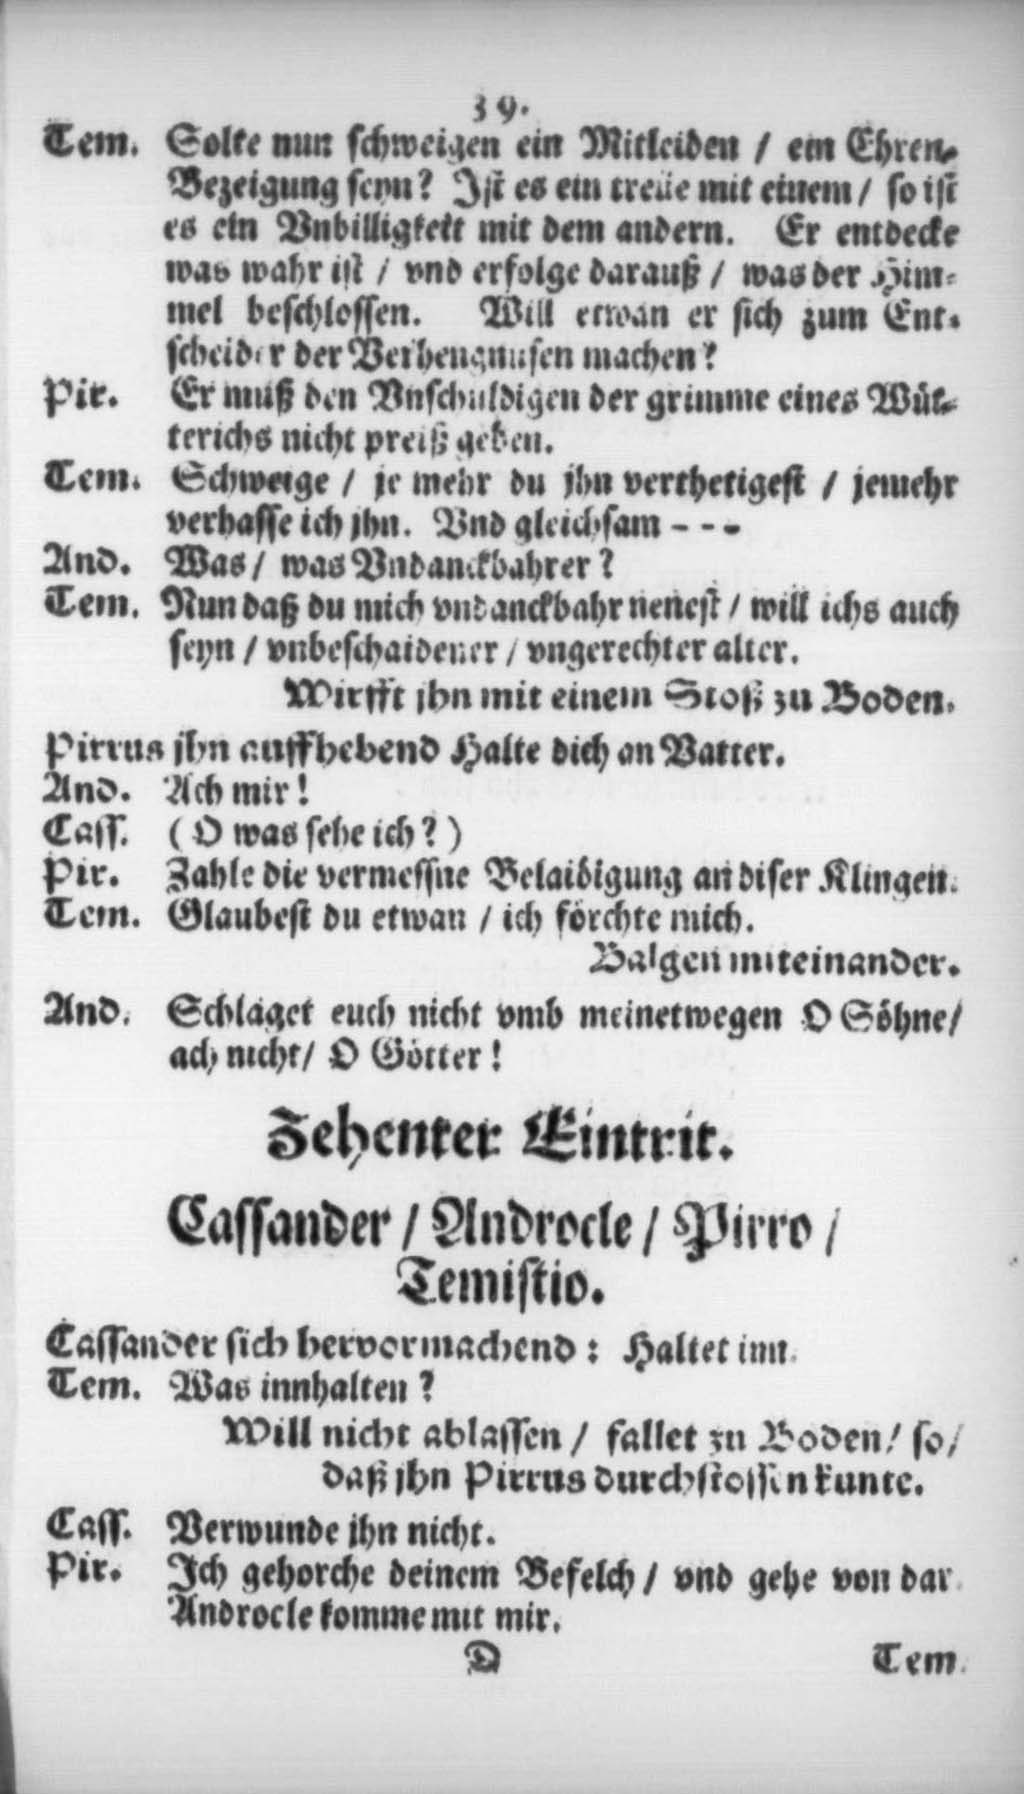 39.
Tem. Solte nun schweigen ein Mitleiden / ein Ehren-
Bezeigung seyn? Jst es ein treüe mit einem / so ist
es ein Vnbilligkeit mit dem andern. Er entdecke
was wahr ist / vnd erfolge darauß / was der Him-
mel beschlossen. Will etwan er sich zum Ent-
scheider der Verhengnusen machen?
Pir. Er muß den Vnschuldigen der grimme eines Wüt-
terichs nicht preiß geben.
Tem. Schweige / je mehr du jhn verthetigest / jemehr
verhasse ich jhn. Vnd gleichsam - - -
And. Was / was Vndanckbahrer?
Tem. Nun daß du mich vndanckbahr nenest / will ichs auch
seyn / vnbeschaidener / vngerechter alter.
Wirfft jhn mit einem Stoß zu Boden.
Pirrus jhn auffhebend Halte dich an Vatter.
And. Ach mir!
Cass. ( O was sehe ich? )
Pir. Zahle die vermessne Belaidigung an diser Klingen.
Tem. Glaubest du etwan / ich förchte mich.
Balgen miteinander.
And. Schlaget euch nicht vmb meinetwegen O Söhne /
ach nicht / O Götter!
Zehenter Eintrit.
Cassander / Androcle / Pirro /
Temistio.
Cassander sich hervormachend : Haltet inn.
Tem. Was innhalten?
Will nicht ablassen / fallet zu Boden / so /
daß jhn Pirrus durchstossen kunte.
Cass. Verwunde jhn nicht.
Pir. Jch gehorche deinem Befelch / vnd gehe von dar
Androcle komme mit mir.
D Tem.